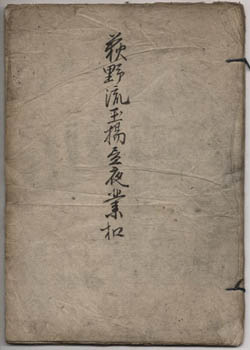 荻野流玉揚夜業扣